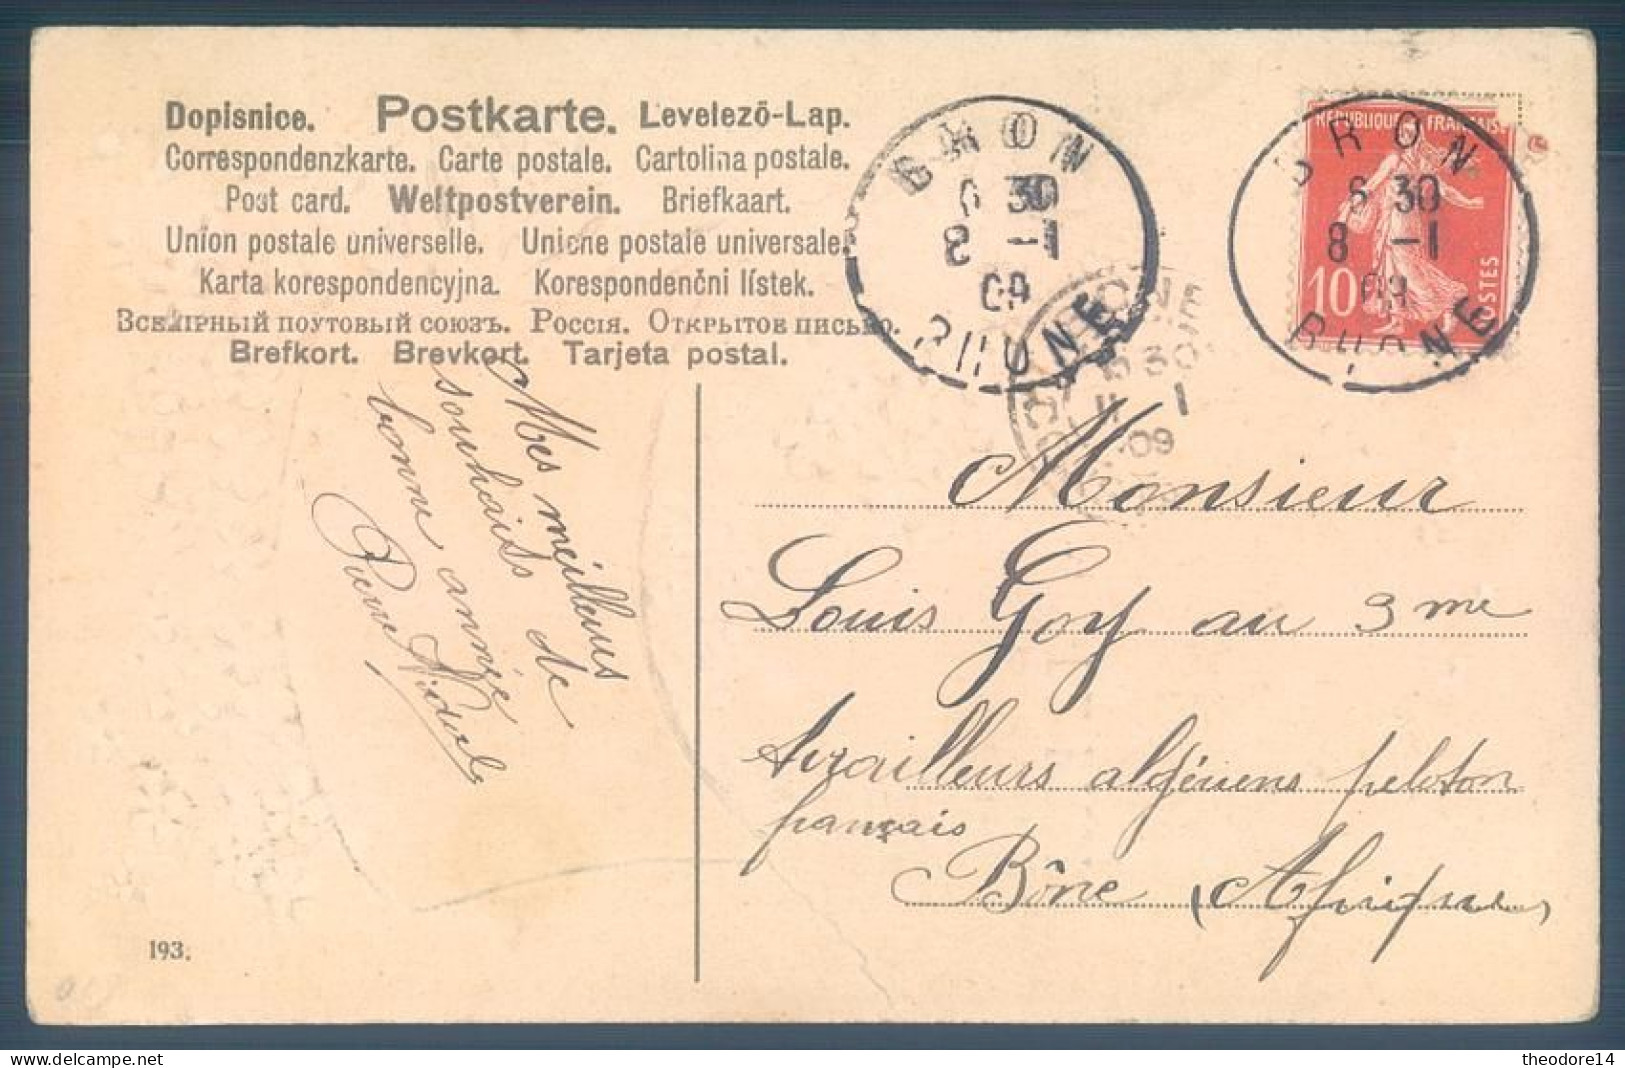 Dopisnice. Postkarte. Levelezō-Lap.
Correspondenzkarte. Carte postale. Cartolina postale.
Post card. Weltpostverein. Briefkaart.
Union postale universelle. Unione postale universale.
Karta korespondencyjna. Korespondenčni lístek.
Всемірный поутовый союзъ. Россія. Открытое письмо.
Brefkort. Brevkort. Tarjeta postal.
BRON
6 30
8 -1
09
RHONE
BRON
6 30
8 -1
09
RHONE
REPUBLIQUE FRANÇAISE
10
POSTES
30
11 1
09
Mes meilleurs
souhaits de
bonne année
Pierre
Monsieur
Louis Goy au 3me
tirailleurs algériens peloton
français
Bône (Afrique)
193.
theodore14